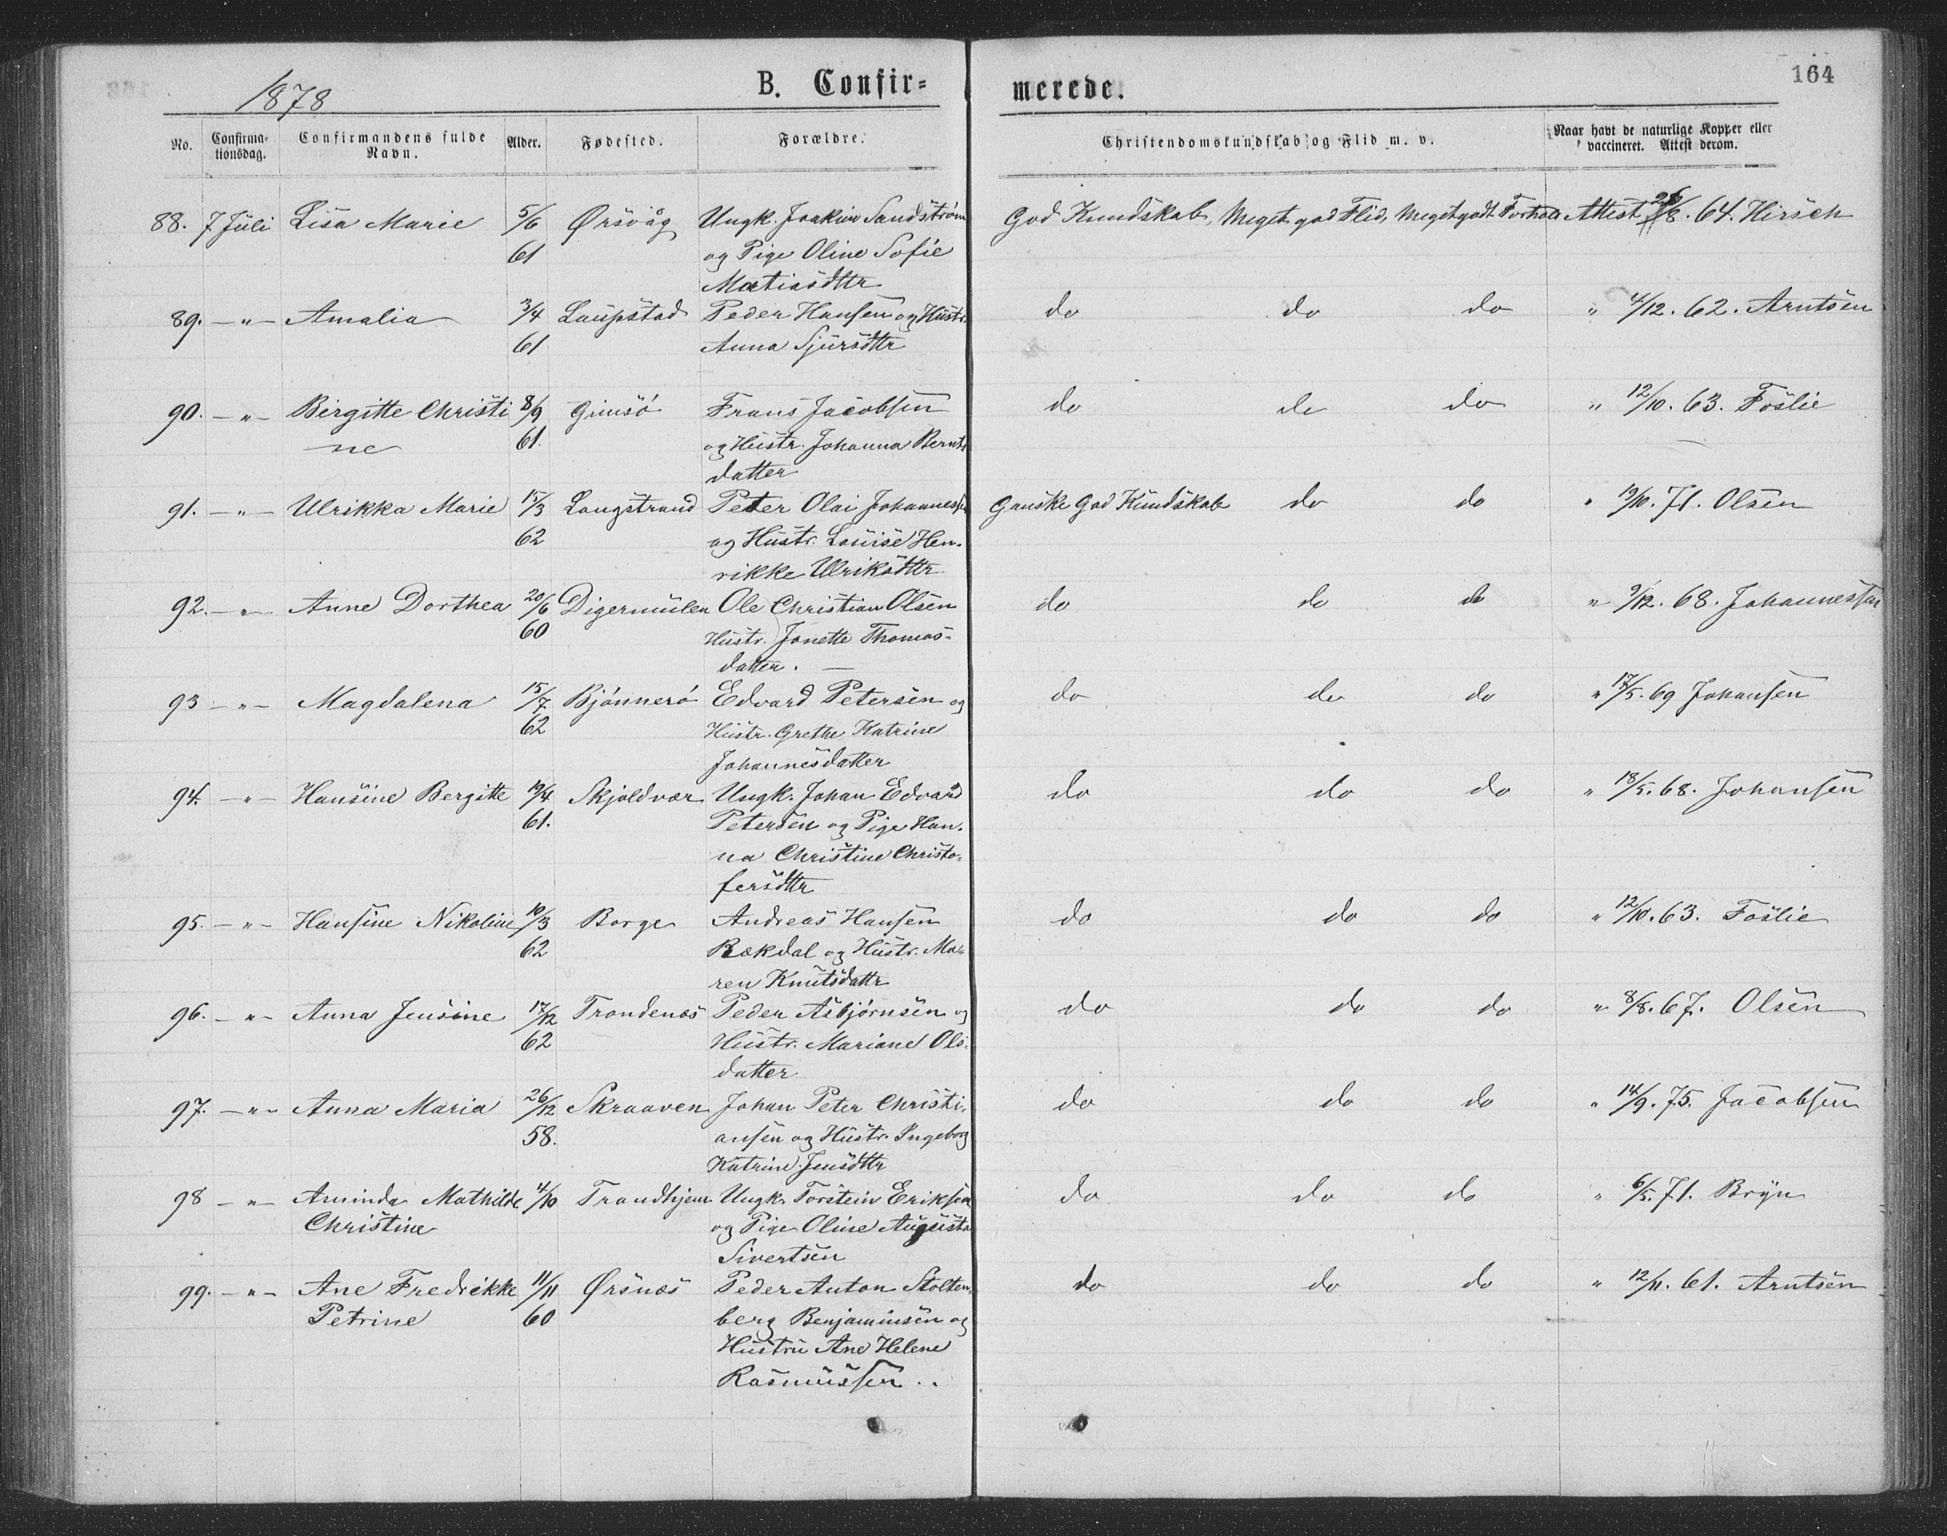 1878
B. Confir=
merede.
164
No. Confirma-tionsdag. Confirmandens fulde Navn. Alder. Fødested. Forældre. Christendomskundskab og Flid m. v. Naar havt de naturlige Kopper eller vaccineret. Attest derom.
88. 7 Juli Lisa Marie 5/6 Ørsvåg Ungk. Joakim Sandström God Kundskab, Meget god Flid, Meget godt Forhold Attest 8. 64. Hirsch
61 og Pige Oline Sofie
Matisdttr
89. — " — Amalia 3/4 Laupstad Peder Hansen og Hustr. do do do " 4/12. 62. Arntsen
61 Anna Sjursdttr
90. — " — Birgitte Christi 8/9 Gimsö Frans Jacobsen do do do " 12/10. 63. Foslie
ne 61. og Hustr. Johanna Bernts
datter
91. — " — Ulrikka Marie 15/3 Langstrand Peter Olai Johannessen Ganske God Kundskab do do " 19/10. 71. Olsen
62 og Hustr. Louise Hen-
rikke Ulriksdttr
92. — " — Anne Dorthea 20/6 Digermulen Ole Christian Olsen do do do " 9/12. 68. Johannessen
60 Hustr. Jonette Thomas-
datter. —
93 — " — Magdalena 15/7 Bjönnerö Edvard Petersen og do do do " 17/5. 69 Johansen
62 Hustr. Grethe Katrine
Johannesdatter
94. — " — Hansine Bergitte 19/4 Skjoldvær Ungk. Johan Edvard do do do " 18/5. 68. Johansen
61. Petersen og Pige Han-
na Christine Christo-
fersdttr
95. — " — Hansine Nikoline 10/3 Borge Andreas Hansen do do do " 12/10. 63. Foslie
62 Rækdal og Hustr. Ma-
ren Knutsdattr
96. — " — Anna Jensine 17/12 Trondenæs Peder Asbjørnsen og do do do " 8/8. 67. Olsen
62 Hustr. Mariane Ols-
datter
97. — " — Anna Maria 26/12 Skraaven Johan Peter Christi- do do do " 14/9. 75. Jacobsen
58. ansen og Hustr. Ingeborg
Katrine Jensdttr
98 — " — Aminda Mathilde 4/10 Trondhjem Ungk. Torstein Eriksen do do do " 6/5. 71. Bryn
Christine og Pige Oline Augusta
Sivertsen
99. — " — Ane Fredrikke 11/11 Ørsnæs Peder Anton Stolten- do do do " 12/11. 61. Arntsen
Petrine 60 berg Benjaminsen og
Hustru Ane Helene
Rasmussen ..